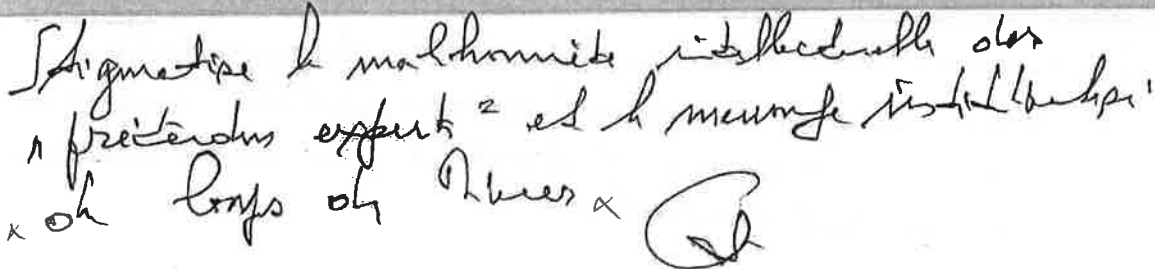 Stigmatise la malhonnêteté intellectuelle des
"prétendus experts" et le mensonge institutionnalisé
de Corps de Mines